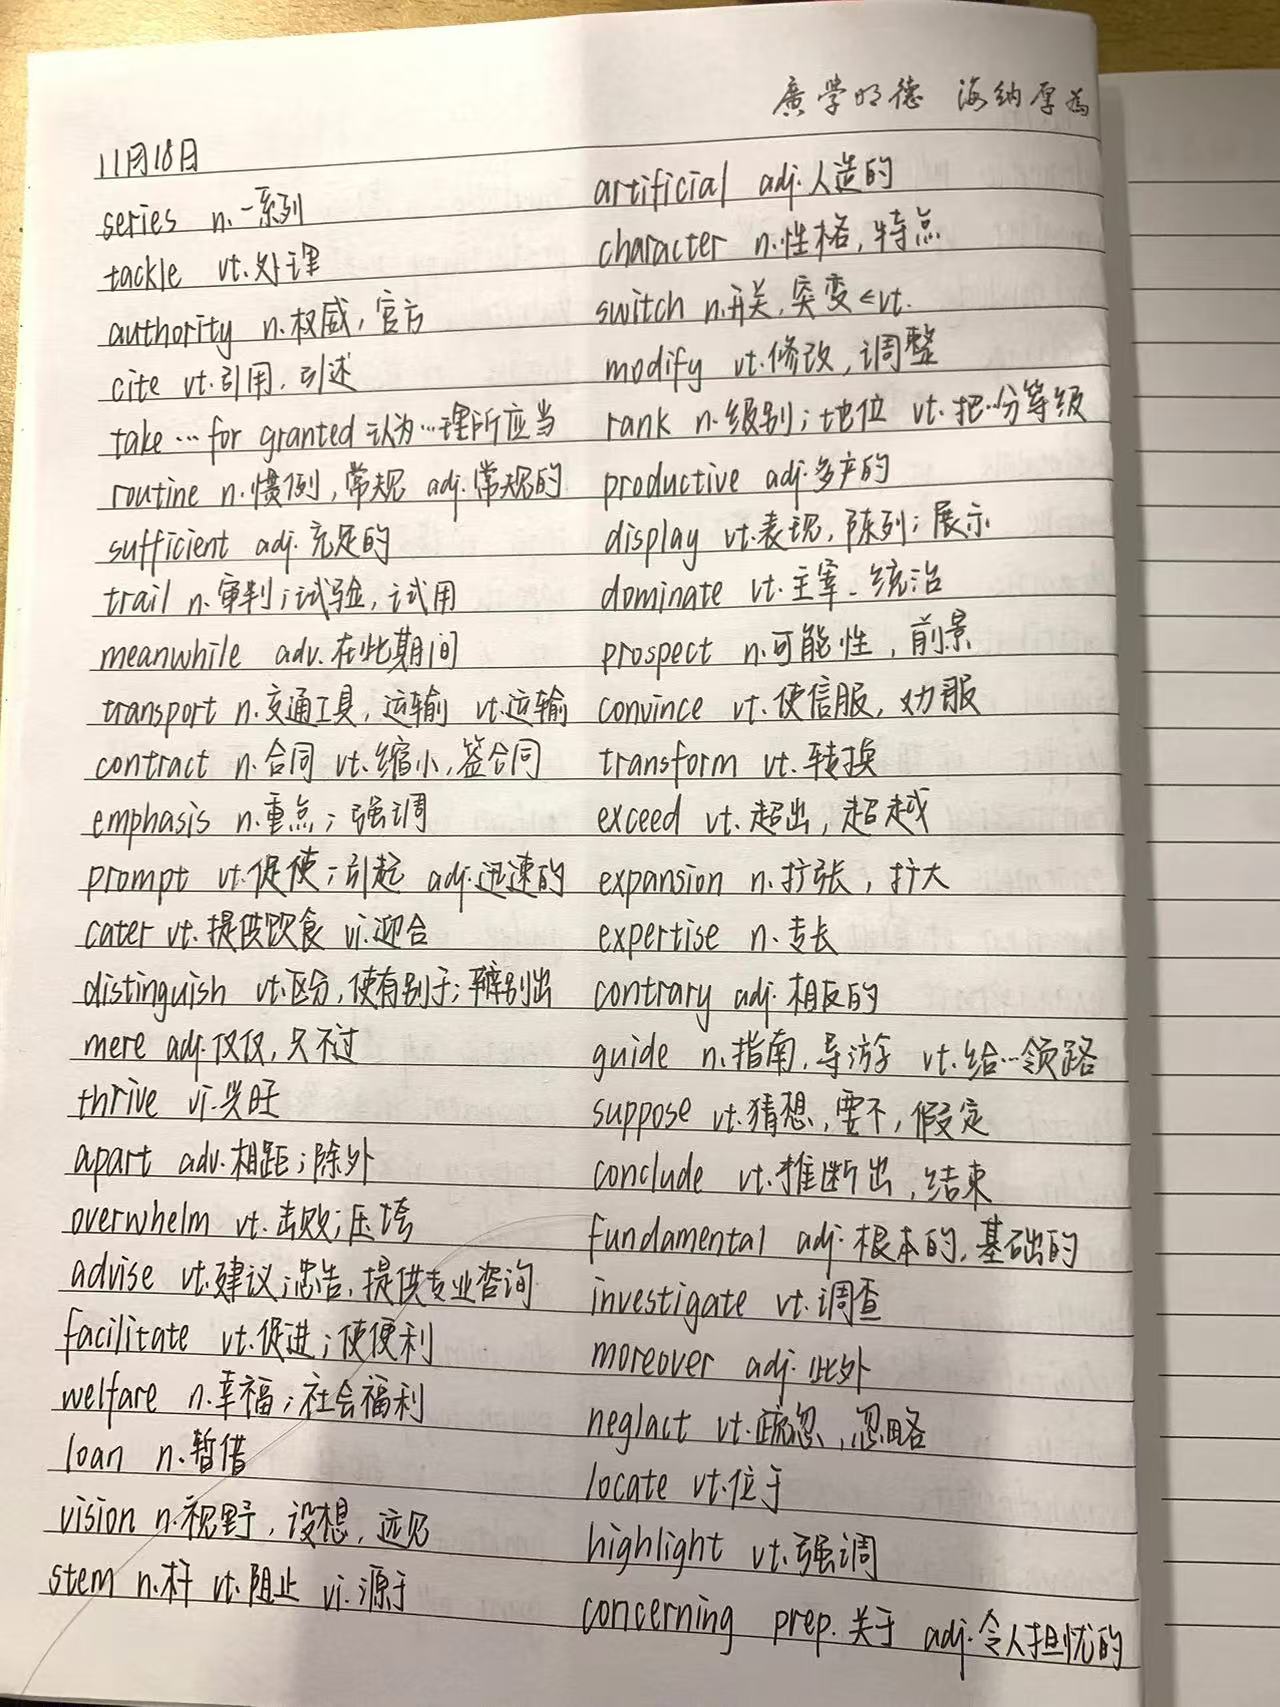 廣學明德 海纳厚为
11月18日
series n.一系列
tackle vt.处理
authority n.权威,官方
cite vt.引用,引述
take…for granted 认为…理所应当
routine n.惯例,常规 adj.常规的
sufficient adj.充足的
trail n.审判;试验,试用
meanwhile adv.在此期间
transport n.交通工具,运输 vt.运输
contract n.合同 vt.缩小,签合同
emphasis n.重点;强调
prompt vt.促使;引起 adj.迅速的
cater vt.提供饮食 vi.迎合
distinguish vt.区分,使有别于;辨别出
mere adj.仅仅,只不过
thrive vi.兴旺
apart adv.相距;除外
overwhelm vt.击败;压垮
advise vt.建议;忠告,提供专业咨询
facilitate vt.促进;使便利
welfare n.幸福;社会福利
loan n.暂借
vision n.视野,设想,远见
stem n.杆 vt.阻止 vi.源于
artificial adj.人造的
character n.性格,特点
switch n.开关,突变<vt.
modify vt.修改,调整
rank n.级别;地位 vt.把…分等级
productive adj.多产的
display vt.表现,陈列;展示
dominate vt.主宰、统治
prospect n.可能性,前景
convince vt.使信服,劝服
transform vt.转换
exceed vt.超出,超越
expansion n.扩张,扩大
expertise n.专长
contrary adj.相反的
guide n.指南,导游 vt.给…领路
suppose vt.猜想,要不,假定
conclude vt.推断出,结束
fundamental adj.根本的,基础的
investigate vt.调查
moreover adj.此外
neglact vt.疏忽,忽略
locate vt.位于
highlight vt.强调
concerning prep.关于 adj.令人担忧的